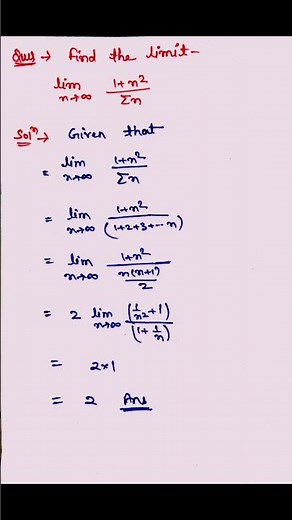 Ques → Find the limit-
lim n→∞ 1+n² / Σn
Solⁿ → Given that
= lim n→∞ 1+n² / Σn
= lim n→∞ 1+n² / (1+2+3+--- n)
= lim n→∞ 1+n² / n(n+1)/2
= 2 lim n→∞ (1/n²+1) / (1+1/n)
= 2×1
= 2 Ans